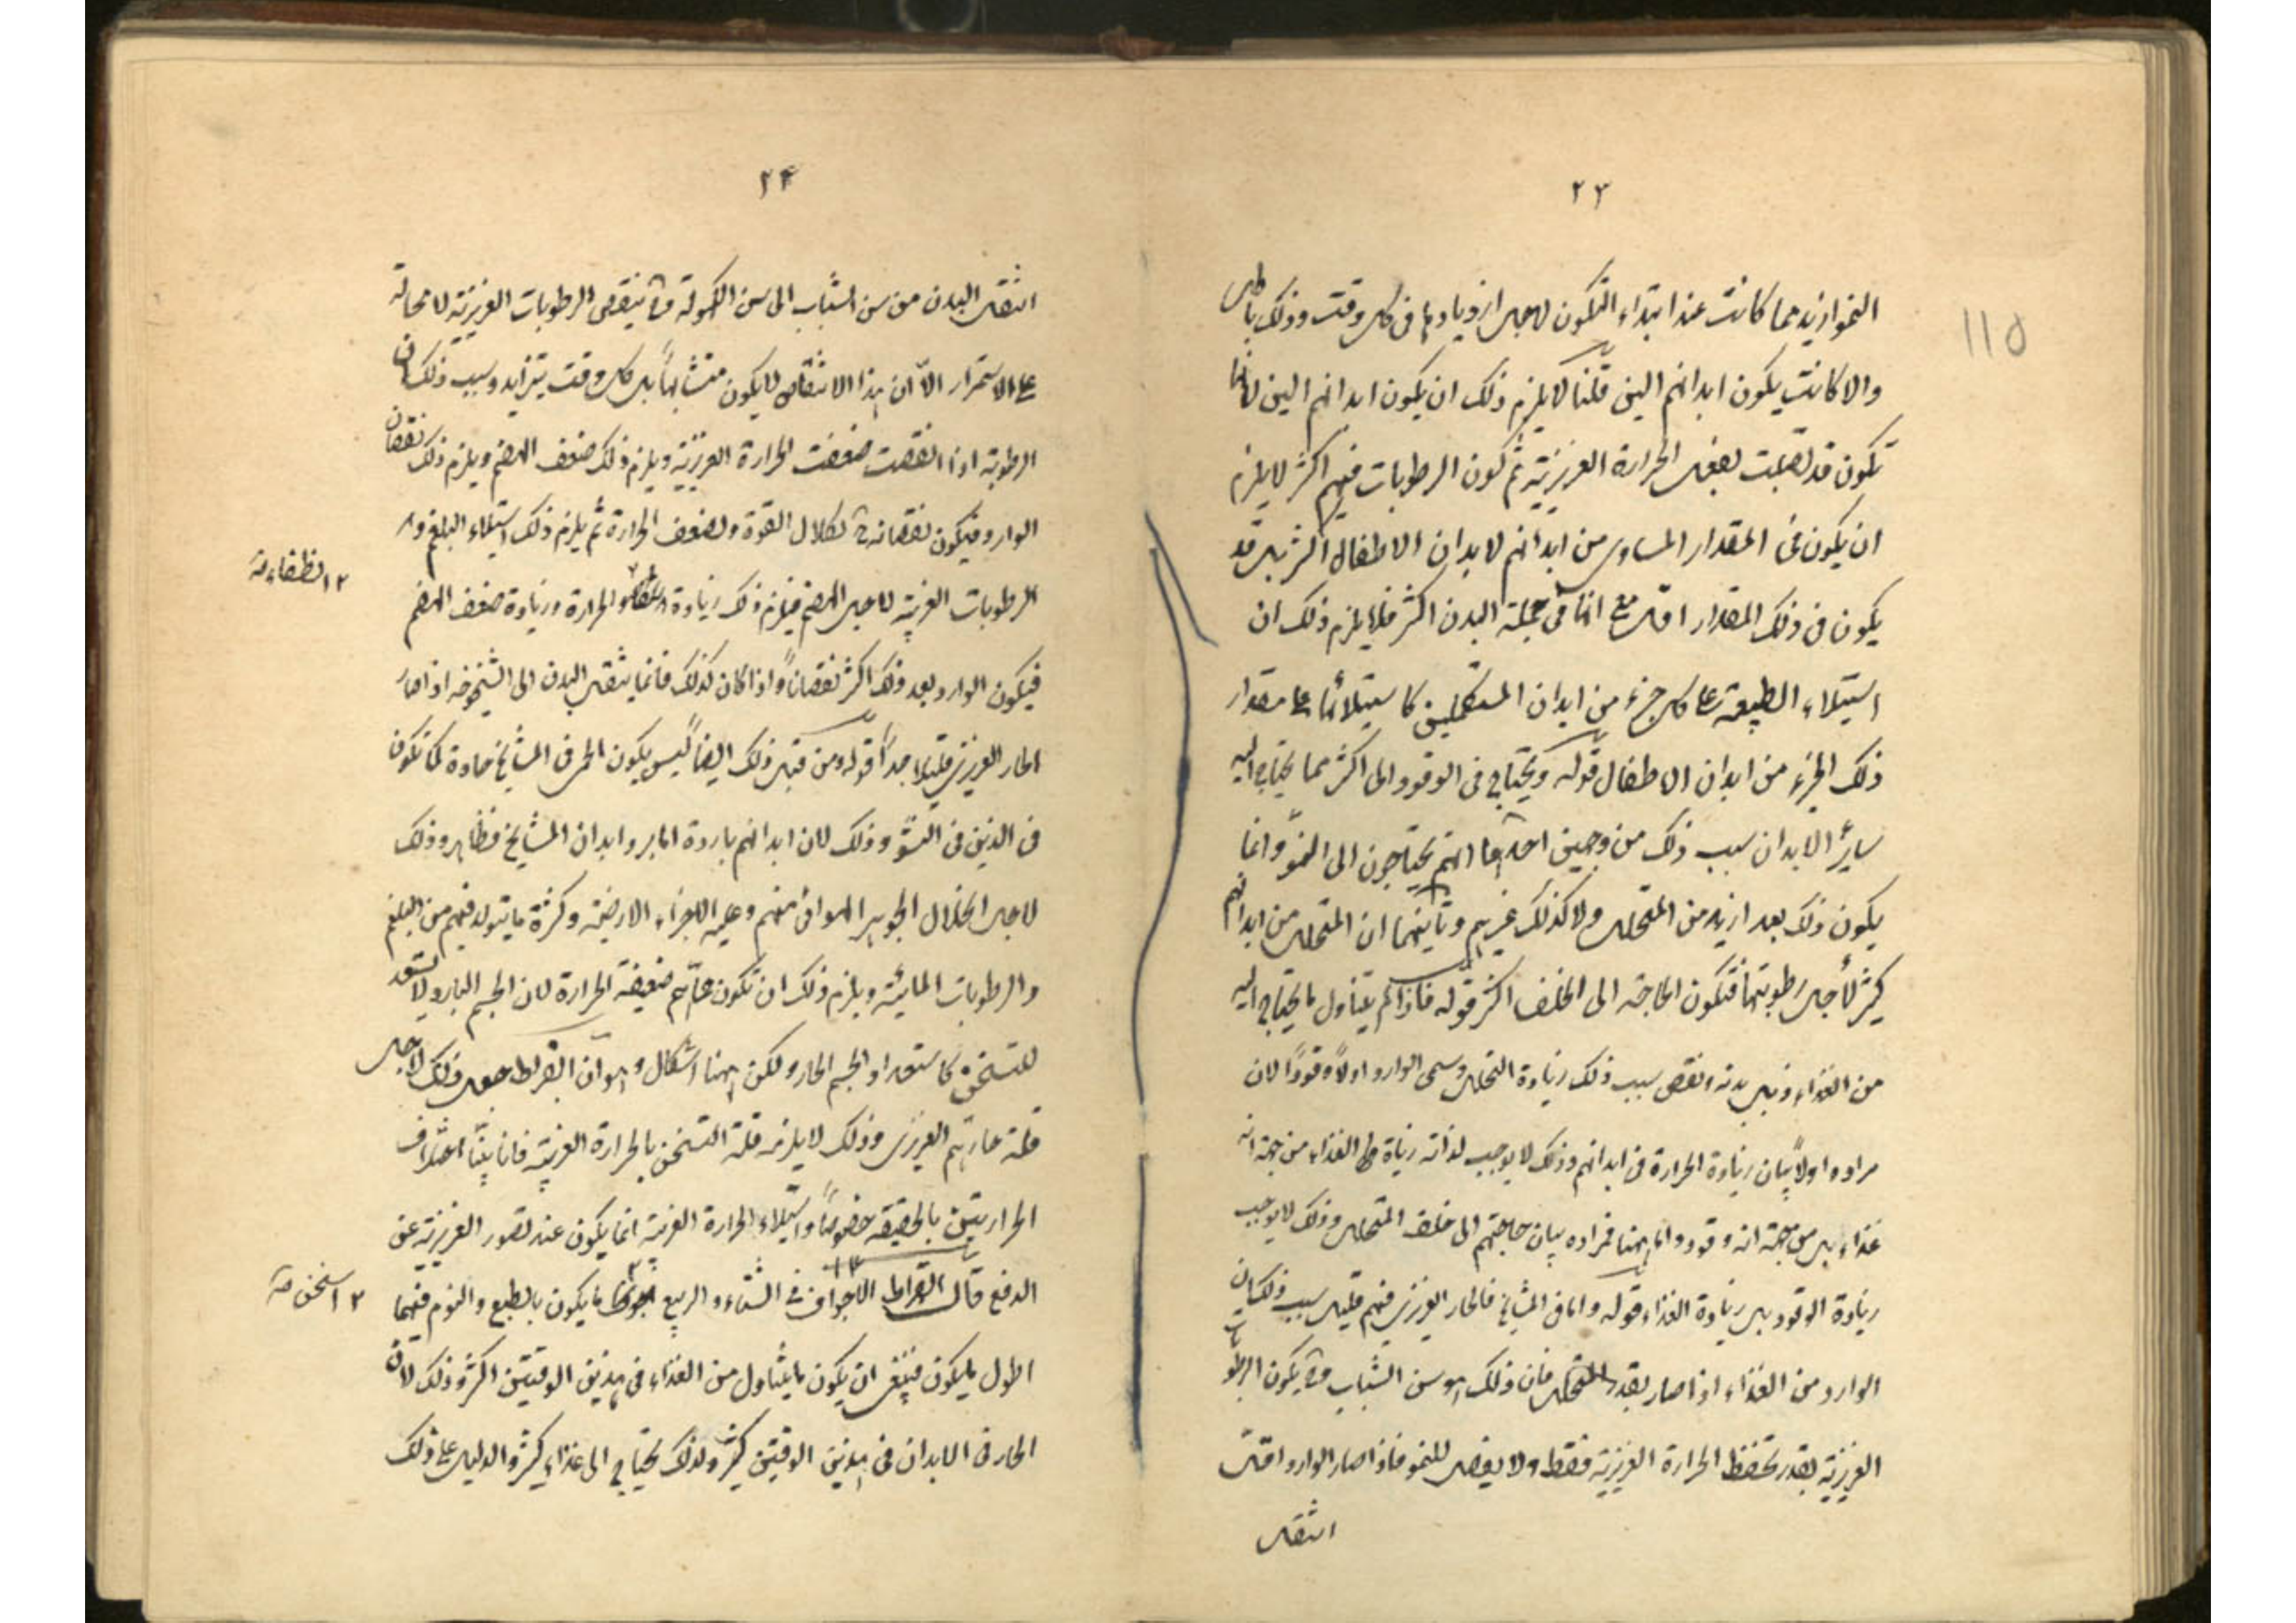 ٢٣
النمو ازيد مما كانت عند ابتداء التكون لاجل ازديادها فى كل وقت وذلك باطل
والا كانت يكون ابدانهم الين قلنا لا يلزم ذلك ان يكون ابدانهم الين لانها
تكون قد تصلبت بفعل الحرارة الغريزية ثم كون الرطوبات فيهم اكثر لا يلزم
ان يكون فى المقدار المساوى من ابدانهم لابدان الاطفال اكثر بل قد
يكون فى ذلك المقدار اقل مع انها فى جملة البدن اكثر فلا يلزم ذلك ان
استيلاء الطبيعة على كل جزء من ابدان المستكملين كاستيلائها على مقدار
ذلك الجزء من ابدان الاطفال قوله ويحتاج فى الوقود الى اكثر مما يحتاج اليه
سائر الابدان سبب ذلك من وجهين احدهما انهم يحتاجون الى النمو وانما
يكون ذلك بعد ازيد من المتحلل ولا كذلك غيرهم وثانيهما ان المتحلل من ابدانهم
كثير لأجل رطوبتها فتكون الحاجة الى الخلف اكثر قوله فاذا لم يتناول ما يحتاج اليه
من الغذاء ذبل بدنه وانقص سبب ذلك زيادة التحلل وسمى الوارد اولاً وقودًا لان
مراده اولاً بيان زيادة الحرارة فى ابدانهم وذلك لا يوجب لذاته زيادة فى الغذاء من جهة انه
غذاء بل من جهة انه وقود واما ههنا فمراده بيان حاجتهم الى خلف المتحلل وذلك لا يوجب
زيادة الوقود بل زيادة الغذاء قوله واما فى المشايخ فالحار الغريزى فيهم قليل سبب ذلك ان
الوارد من الغذاء اذا صار بقدر المتحلل فان ذلك هو سن الشباب وح يكون الرطوبات
الغريزية بقدر تحفظ الحرارة الغريزية فقط ولا يفضل للنمو فاذا صار الوارد اقل
انتقل
٢٤
انتقل البدن من سن الشباب الى سن الكهولة وح ينقص الرطوبات الغريزية لا محالة
على الاستمرار الا ان هذا الانتقاص لا يكون متشابهاً بل كل وقت يتزايد وسبب ذلك ان
الرطوبة اذا انقصت ضعفت الحرارة الغريزية ويلزم ذلك ضعف الهضم ويلزم ذلك نقصان
الوارد فيكون نقصانه ح لكلال القوة ولضعف الحرارة ثم يلزم ذلك استيلاء البلغم و
الرطوبات الغريبة لاجل الهضم فيلزم ذلك زيادة الحرارة وزيادة ضعف الهضم
٢ انطفاء صة
فيكون الوارد بعد ذلك اكثر نقصاناً واذا كان كذلك فانما ينتقل البدن الى الشيخوخة اذا صار
الحار الغريزى قليلا جداً قوله ومن قبل ذلك ايضا ليس يكون الحمى فى المشايخ حادة كما تكون
فى الذين فى النشو وذلك لان ابدانهم باردة اما برد ابدان المشايخ فظاهر وذلك
لاجل انحلال الجوهر الهوائى منهم وغلبة الاجزاء الارضية وكثرة ما يتولد فيهم من البلغم
والرطوبات المائية ويلزم ذلك ان تكون حماهم ضعيفة الحرارة لان الجسم البارد لا يستعد
للتسخن كاستعداد الجسم الحار ولكن ههنا اشكال وهو ان ابقراط جعل ذلك لاجل
قلة حارهم الغريزى وذلك لا يلزمه قلة التسخن بالحرارة الغريبة فانا بيّنا اختلاف
الحرارتين بالحقيقة خصوصاً واستيلاء الحرارة الغريبة انما يكون عند قصور الغريزية عن
الدفع قال ابقراط الاجواف فى الشتاء والربيع ما يكون بالطبع والنوم فيهما
٢ اسخن صة
اطول ما يكون فينبغى ان يكون ما يتناول من الغذاء فى هذين الوقتين اكثر وذلك لان
الحار فى الابدان فى هذين الوقتين كثير ولذلك يحتاج الى غذاء كثير والدليل على ذلك
115